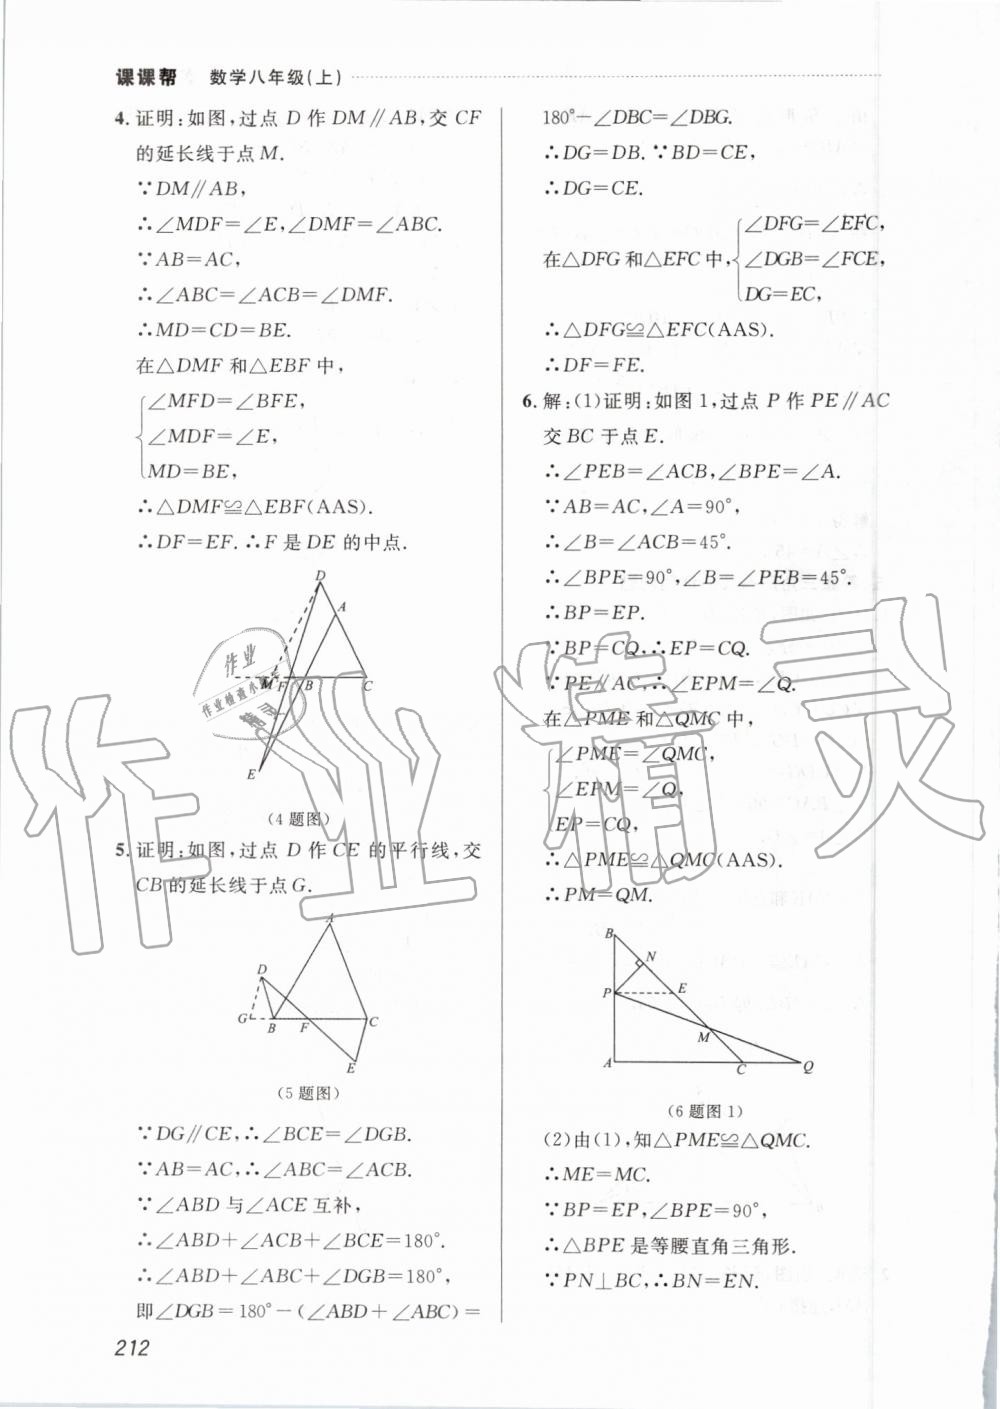 课课帮 数学八年级(上)
4. 证明:如图,过点 D 作 DM∥AB,交 CF
的延长线于点 M.
∵DM∥AB,
∴∠MDF=∠E,∠DMF=∠ABC.
∵AB=AC,
∴∠ABC=∠ACB=∠DMF.
∴MD=CD=BE.
在△DMF 和△EBF 中,
∠MFD=∠BFE,
∠MDF=∠E,
MD=BE,
∴△DMF≌△EBF(AAS).
∴DF=EF.∴F 是 DE 的中点.
D
A
M F B C
E
(4题图)
5. 证明:如图,过点 D 作 CE 的平行线,交
CB 的延长线于点 G.
A
D
G B F C
E
(5题图)
∵DG∥CE,∴∠BCE=∠DGB.
∵AB=AC,∴∠ABC=∠ACB.
∵∠ABD 与∠ACE 互补,
∴∠ABD+∠ACB+∠BCE=180°.
∴∠ABD+∠ABC+∠DGB=180°,
即∠DGB=180°-(∠ABD+∠ABC)=
180°-∠DBC=∠DBG.
∴DG=DB.∵BD=CE,
∴DG=CE.
∠DFG=∠EFC,
在△DFG 和△EFC 中, ∠DGB=∠FCE,
DG=EC,
∴△DFG≌△EFC(AAS).
∴DF=FE.
6. 解:(1)证明:如图 1,过点 P 作 PE∥AC
交 BC 于点 E.
∴∠PEB=∠ACB,∠BPE=∠A.
∵AB=AC,∠A=90°,
∴∠B=∠ACB=45°.
∴∠BPE=90°,∠B=∠PEB=45°.
∴BP=EP.
∵BP=CQ,∴EP=CQ.
∵PE∥AC,∴∠EPM=∠Q.
在△PME 和△QMC 中,
∠PME=∠QMC,
∠EPM=∠Q,
EP=CQ,
∴△PME≌△QMC(AAS).
∴PM=QM.
B
N
P E
M
A C Q
(6题图1)
(2)由(1),知△PME≌△QMC.
∴ME=MC.
∵BP=EP,∠BPE=90°,
∴△BPE 是等腰直角三角形.
∵PN⊥BC,∴BN=EN.
212
作业精灵
作业
作业检查小